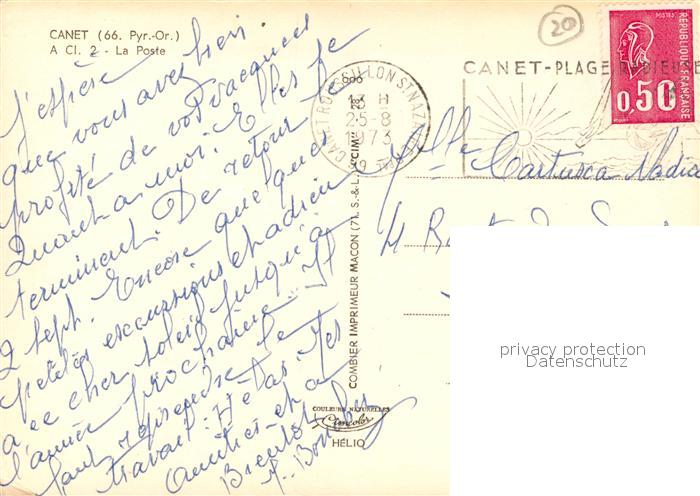 CANET (66. Pyr.-Or.)
A Cl. 2 - La Poste
J'espère
que vous avez bien
profité de vos vacances
Quant à moi. Elles se
terminent. De retour le
2 Sept. Encore quelques
petites excursions et adieu
à ce cher soleil jusqu'à
l'année prochaine. Il
faut reprendre le
travail. Hélas. Mes
Amitiés et à
Bientôt
COMBIER IMPRIMEUR MACON (71, S.-&-L.) "CIM"
COULEURS NATURELLES
Cimcolor
HÉLIO
20
13 H
25-8
1973
CANET-PLAGE RADIEUSE
POSTES
RÉPUBLIQUE FRANÇAISE
0,50
Mlle Nadia
4 R
privacy protection
Datenschutz